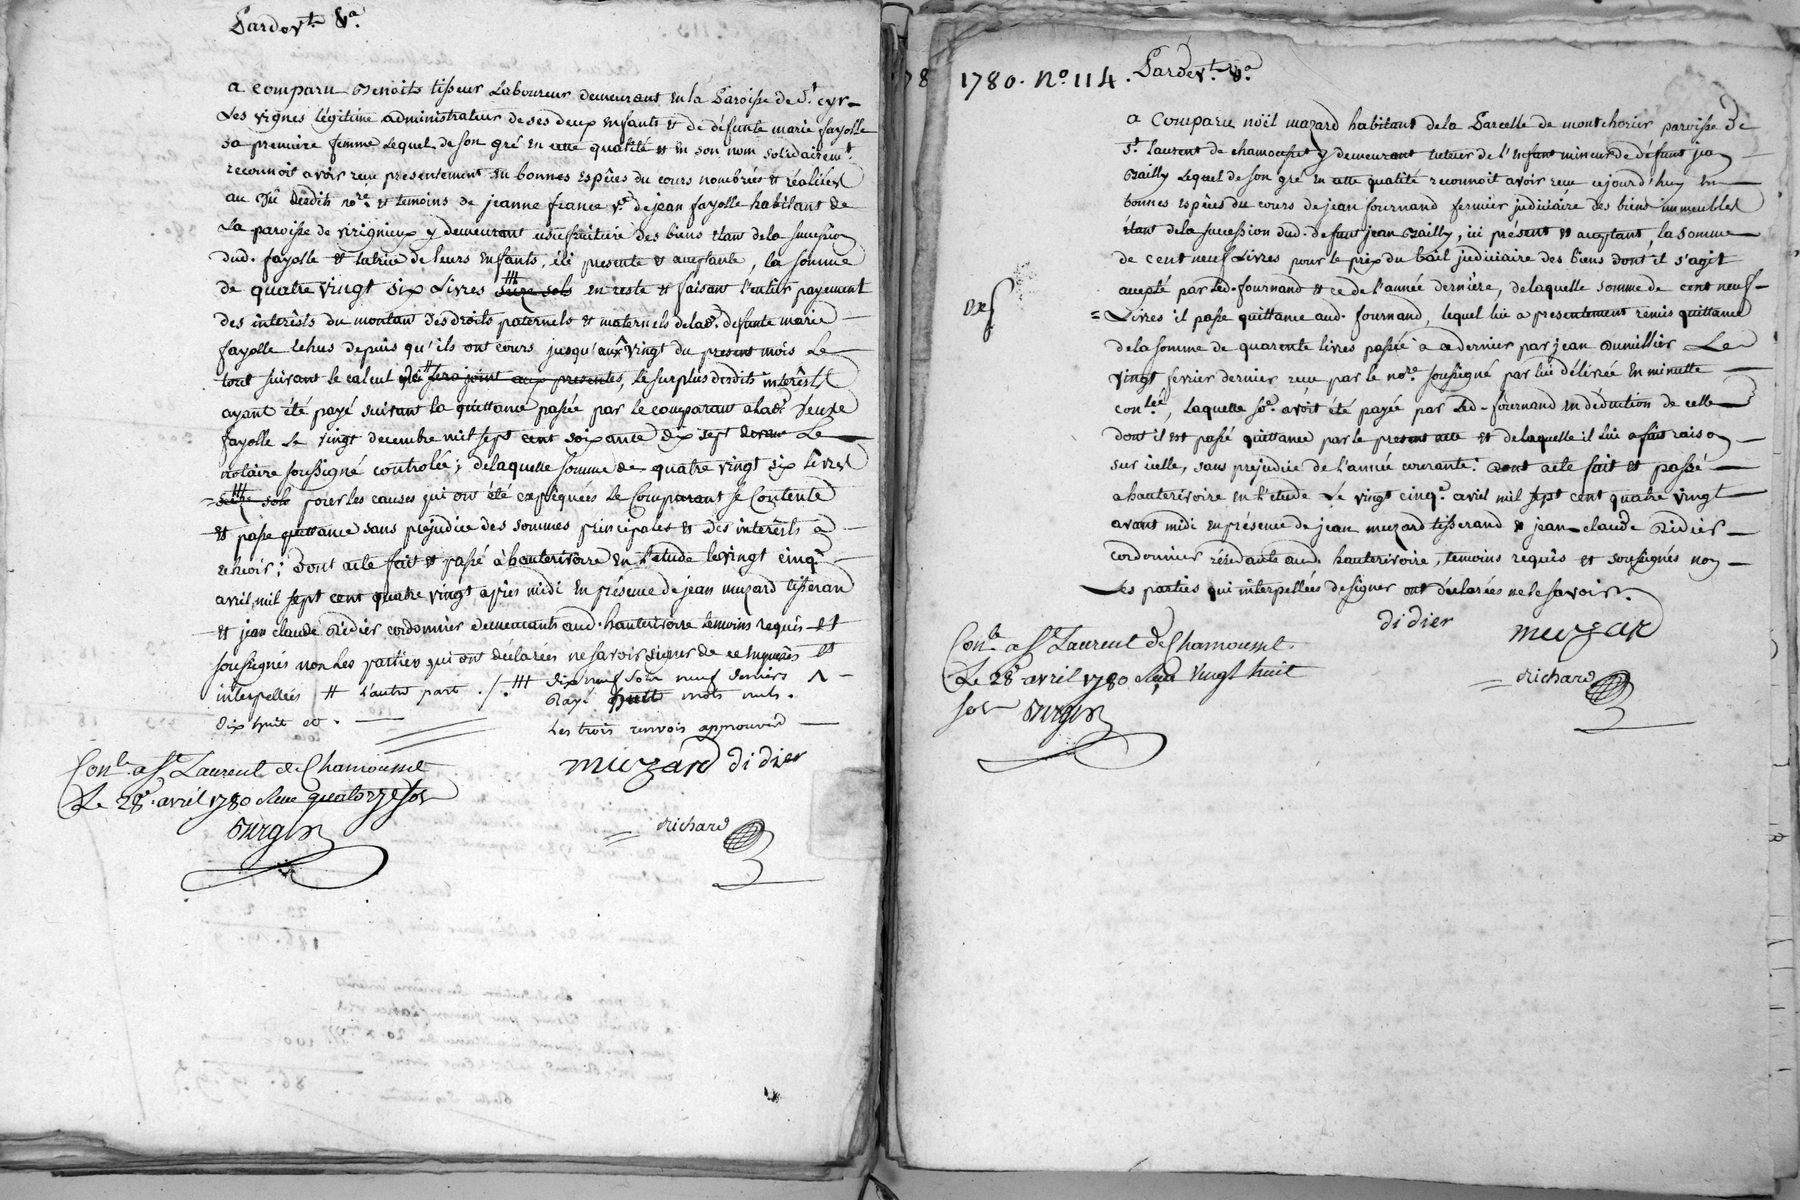 Pardevt. &a.
a comparu Benoit tisseur Laboureur demeurant en la Paroisse de St. cyr
Les vignes légitime administrateur de ses deux enfants et de défunte marie fayolle
sa premiere femme Lequel de son gré en cette qualité et en son nom solidairemt.
reconnoit avoir reçu presentement en bonnes espèces du cours nombrées et réalisées
au Vû desdits nore. et temoins de jeanne france Ve. de jean fayolle habitant de
La paroisse de virignieux y demeurant usufruitiere des biens etant de la succession
dud. fayolle et tutrice de leurs enfants, ici presente et acceptante, la somme
de quatre vingt six Livres seize sols en reste et faisant l'entier payement
des interêts du montant des droits paternels et maternels de lade. defunte marie
fayolle echus depuis qu'ils ont cours jusqu'aux vingt du present mois Le
tout suivant le calcul qui sera joint aux presentes, le surplus desdits interêts
ayant été payé suivant la quittance passée par le comparant a lade. veuve
fayolle Le vingt decembre mil sept cent soixante dix sept devant Le
notaire soussigné controlée; de laquelle somme de quatre vingt six livres
seize sols pour les causes qui ont été expliquées le Comparant se Contente
et passe quittance sans prejudice des sommes principales et des interêts a
echeoir; Dont acte fait et passé à hauterivoire en l'etude le vingt cinq
avril mil sept cent quatre vingt après midi en présence de jean muzard tisserand
et jean claude Didier cordonnier demeurants aud. hauterivoire temoins requis et
soussignés non les parties qui ont déclarées ne savoir signer de ce enquises et
interpellées # L'autre part ./. ### dix neuf sols neuf deniers ^
dix huit et . Rayé huit mots nuls.
Les trois renvois approuvés
muzard didier
Conle. a St Laurent de Chamousset
Le 28e. avril 1780 Reçu quatorze sols
Richard
1780. No. 114. Pardevt. &a.
a Comparu noël mazard habitant de la Parcelle de montchorier paroisse de
St. laurent de chamousset y demeurant tuteur de l'enfant mineur de défunt jean
Bailly Lequel de son gré en cette qualité reconnoit avoir reçu cejourd'huy en
bonnes espèces du cours de jean fournand fermier judiciaire des biens immeubles
étant de la succession dud. defunt jean Bailly, ici présent et acceptant, la somme
de cent neuf Livres pour le prix du bail judiciaire des biens dont il s'agit
accepté par Led. fournand et ce de l'année dernière, de laquelle somme de cent neuf
Livres il passe quittance aud. fournand, lequel lui a presentement remis quittance
de la somme de quarente livres passée a ce dernier par jean Dumillier Le
vingt fevrier dernier reçue par le nore. soussigné par lui délivrée en minutte
conlée, Laquelle se. avoit été payée par Led. fournand en déduction de celle
dont il est passé quittance par le present acte et de laquelle il lui a fait raison
sur icelle, sans prejudice de l'année courante: Dont acte fait et passé
a hauterivoire en l'etude Le vingt cinq. avril mil sept cent quatre vingt
avant midi en présence de jean muzard tisserand et jean-claude Didier
cordonnier résidants aud. hauterivoire, temoins requis et soussignés non
Les parties qui interpellées de signer ont déclarées ne le savoir.
didier muzard
Conle. a St. Laurent de Chamousset
Le 28e. avril 1780 Reçu Vingt huit
sols
Richard